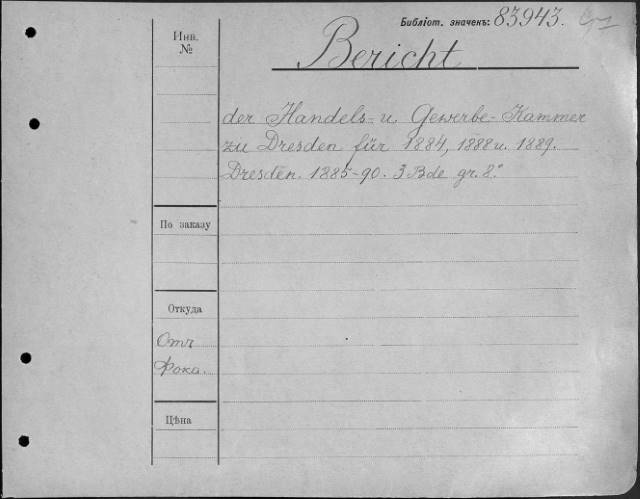 Библіот. значекъ: 83943.
Инв.
№
Bericht
der Handels- u. Gewerbe-Kammer
zu Dresden für 1884, 1888 u. 1889.
Dresden. 1885-90. 3 Bde gr. 8.°
По заказу
Откуда
Отъ
Фока.
Цѣна